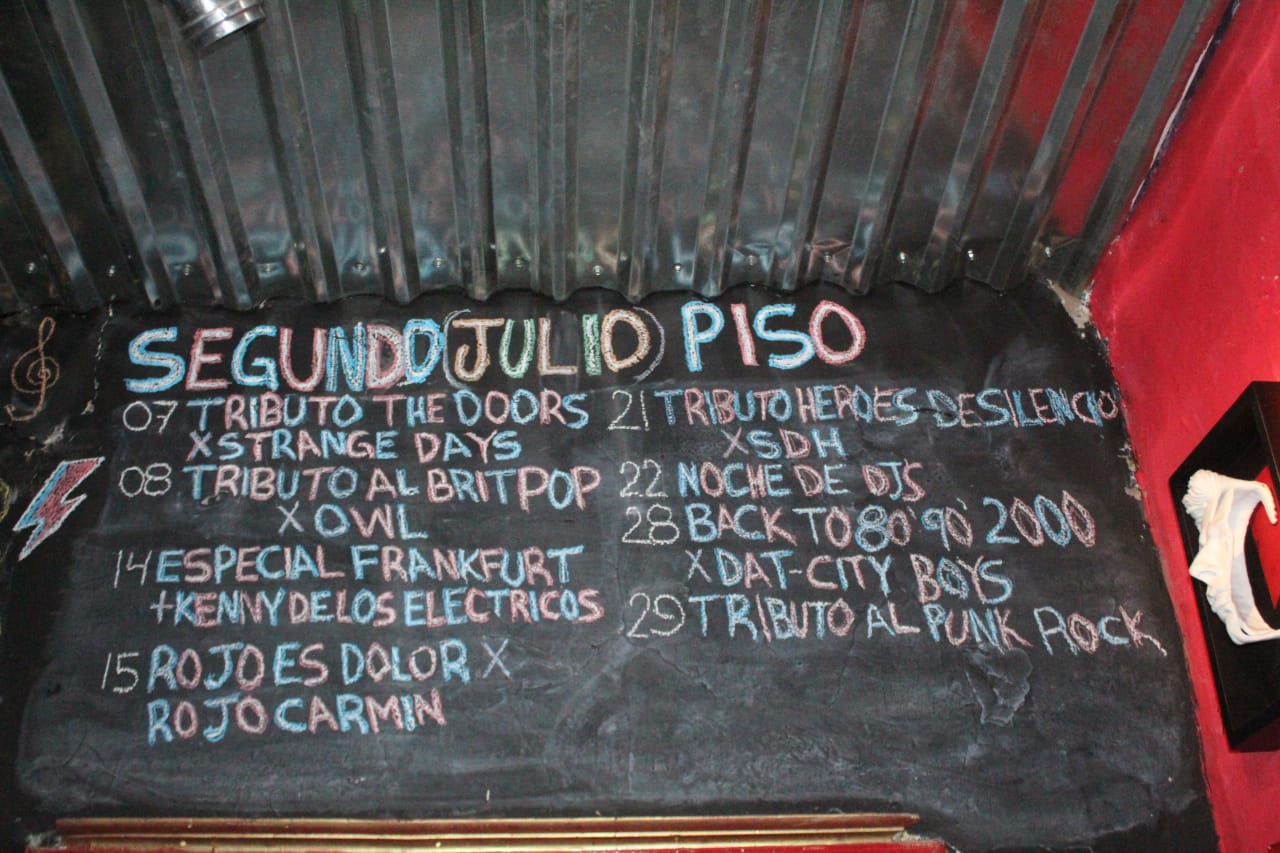 SEGUNDO (JULIO) PISO
07 TRIBUTO THE DOORS
X STRANGE DAYS
08 TRIBUTO AL BRITPOP
X OWL
14 ESPECIAL FRANKFURT
+ KENNY DE LOS ELECTRICOS
15 ROJO ES DOLOR X
ROJO CARMIN
21 TRIBUTO HEROES DE SILENCIO
X SDH
22 NOCHE DE DJS
28 BACK TO 80' 90' 2000
X DAT-CITY BOYS
29 TRIBUTO AL PUNK ROCK